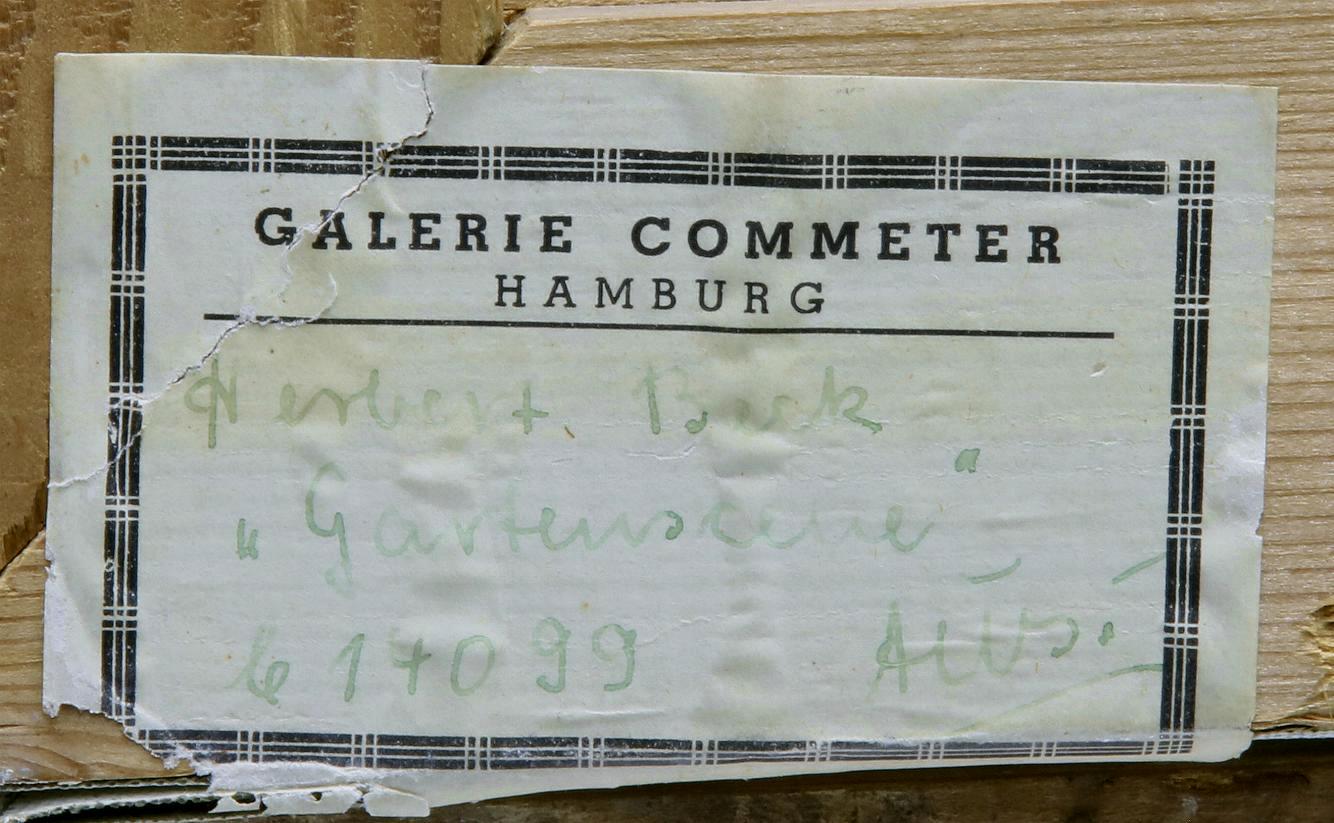 GALERIE COMMETER
HAMBURG
Herbert Beck
„Gartenscene“
14099